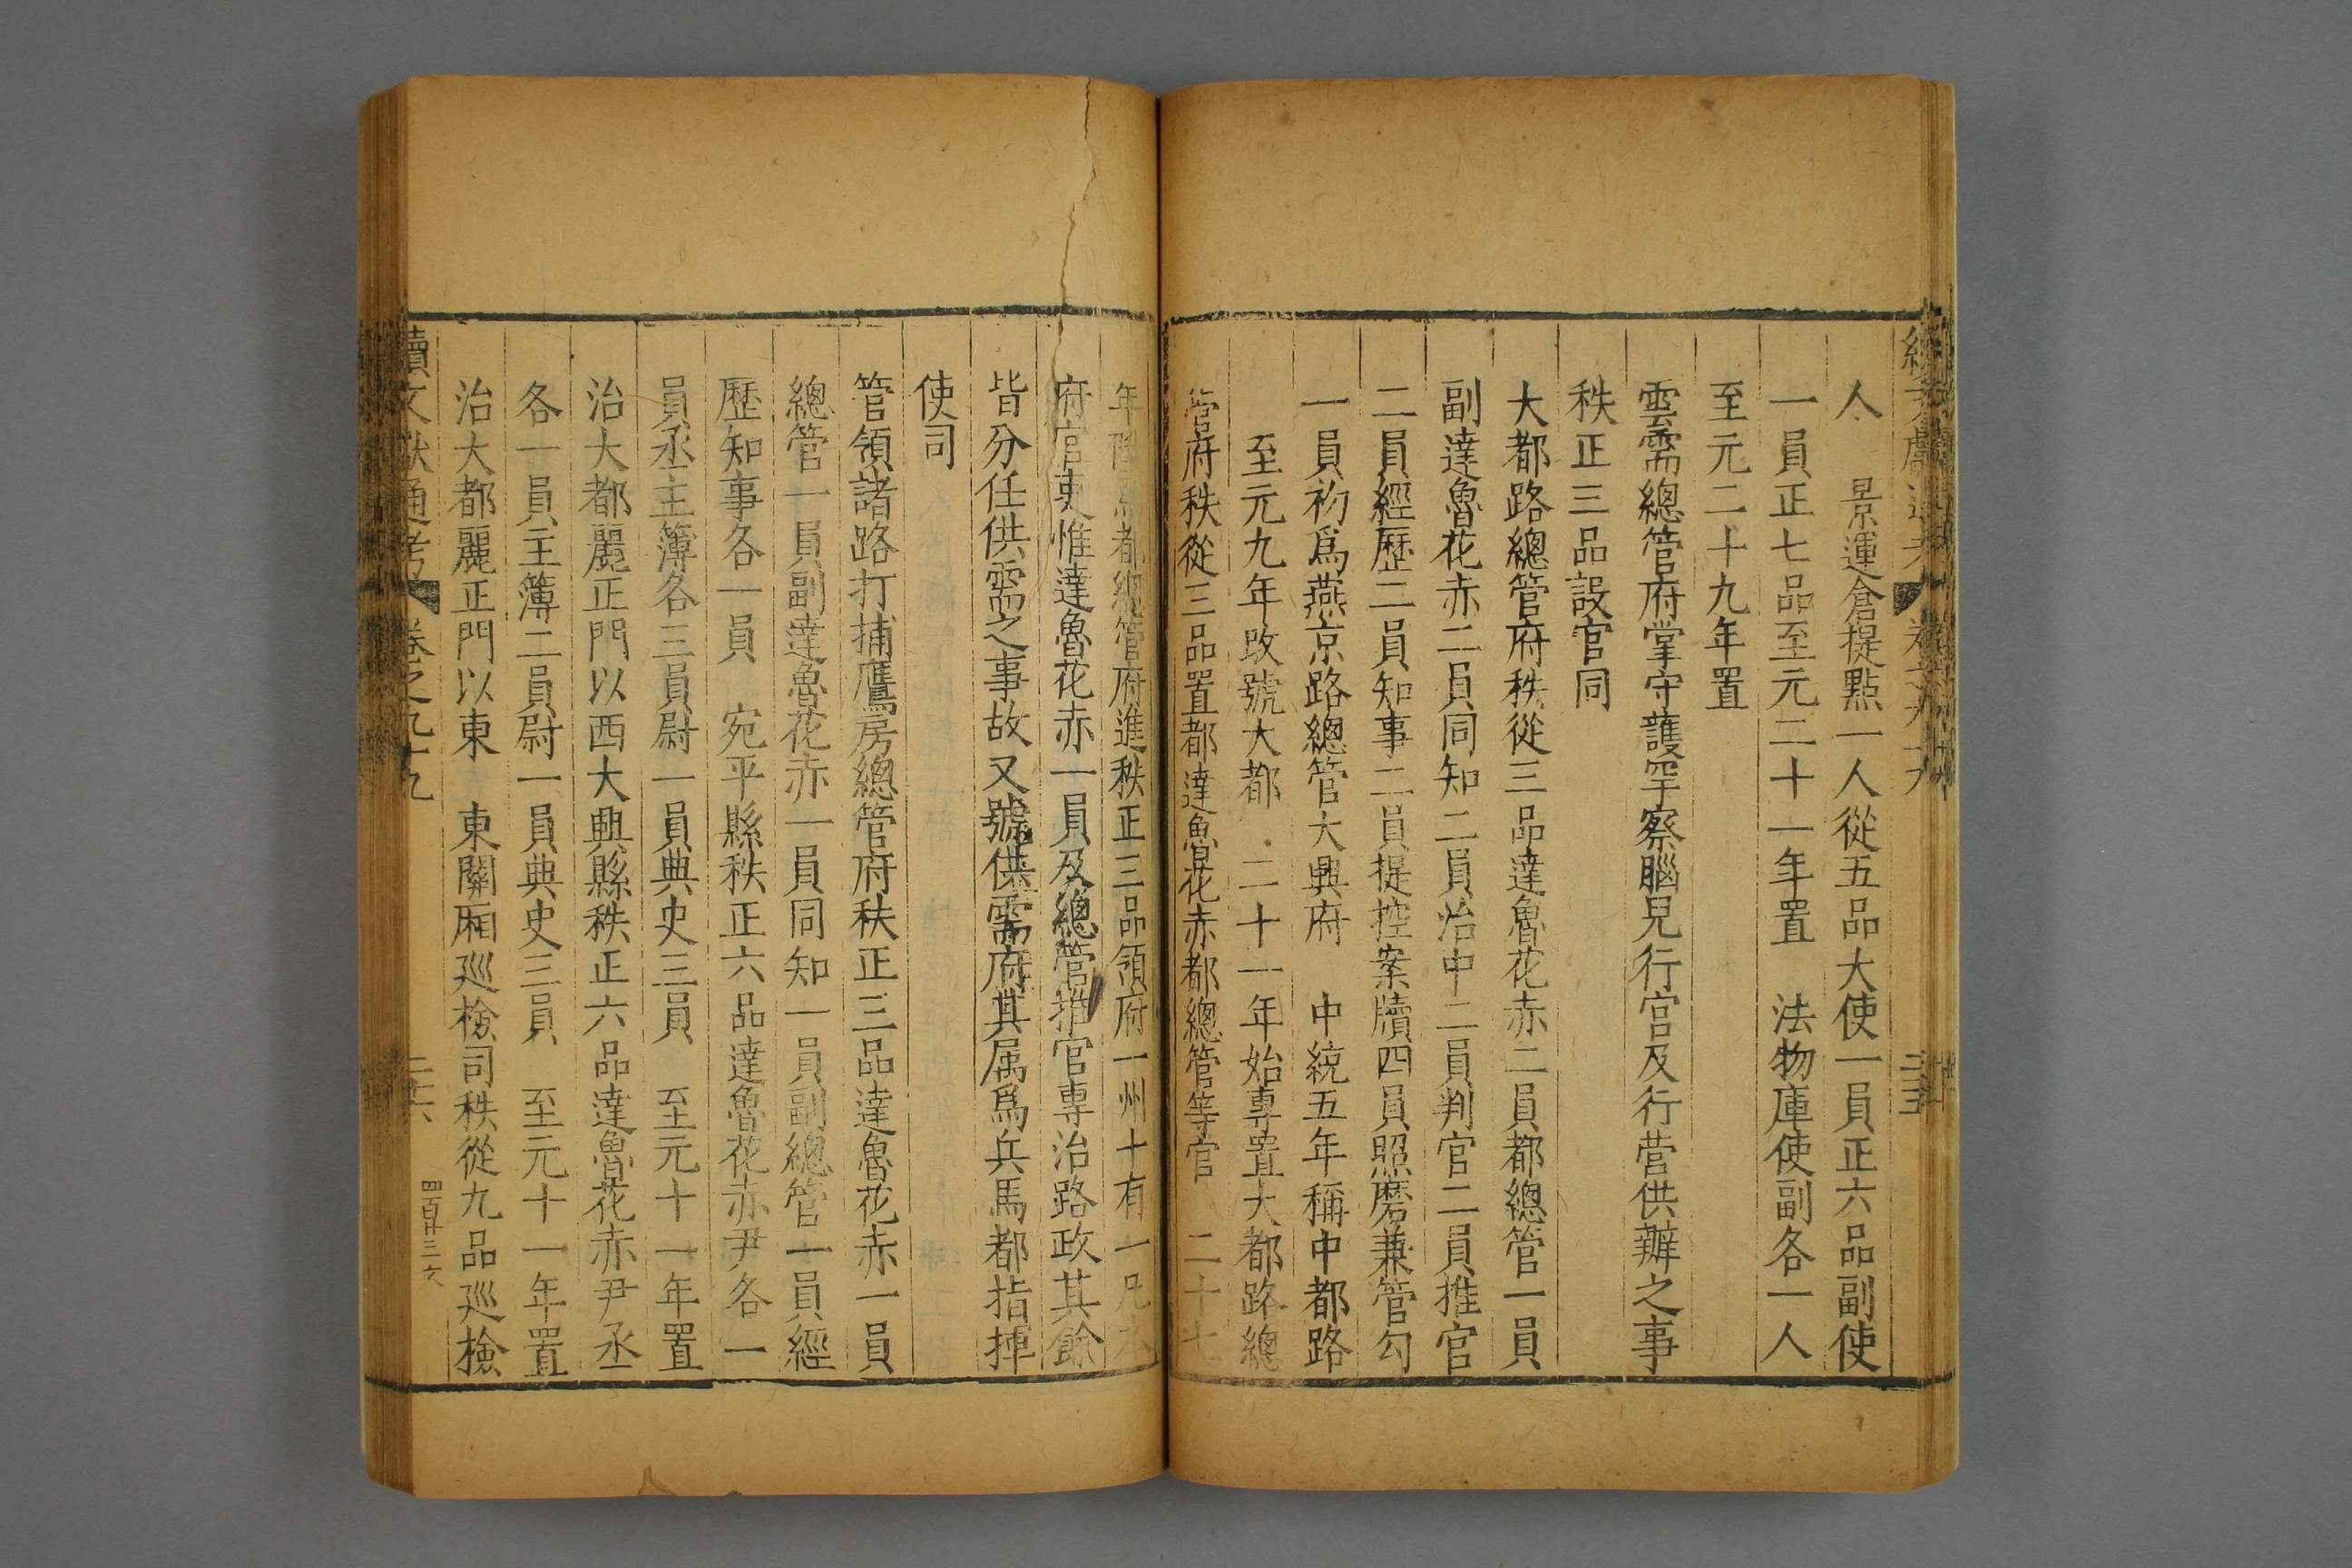 人　景運倉提點一人從五品大使一員正六品副使
一員正七品至元二十一年置　法物庫使副各一人
至元二十九年置
雲需總管府掌守護罕察腦兒行宮及行營供辦之事
秩正三品設官同
大都路總管府秩從三品達魯花赤二員都總管一員
副達魯花赤二員同知二員治中二員判官二員推官
二員經歷二員知事二員提控案牘四員照磨兼管勾
一員初爲燕京路總管大興府　中統五年稱中都路
至元九年改號大都　二十一年始專置大都路總
管府秩從三品置都達魯花赤都總管等官　二十七
年陞爲都總管府進秩正三品領府一州十有一凡本
府官吏惟達魯花赤一員及總管推官專治路政其餘
皆分任供需之事故又號供需府其属爲兵馬都指揮
使司
管領諸路打捕鷹房總管府秩正三品達魯花赤一員
總管一員副達魯花赤一員同知一員副總管一員經
歷知事各一員　宛平縣秩正六品達魯花赤尹各一
員丞主簿各三員尉一員典史三員　至元十一年置
治大都麗正門以西大興縣秩正六品達魯花赤尹丞
各一員主簿二員尉一員典史三員　至元十一年置
治大都麗正門以東　東關厢廵檢司秩從九品廵檢
續文獻通考　卷之九十九
四百廿三六